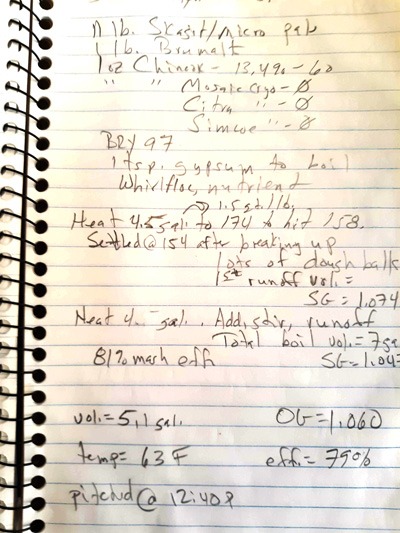 11 lb. Skagit/micro pale
1 lb. Brumalt
1oz Chinook - 13.4% - 60
" " Mosaic cryo - Ø
Citra " - Ø
Simcoe " - Ø
BRY 97
1 tsp. gypsum to boil
Whirlfloc, nutrient
1.5 gal/lb.
Heat 4.5 gal. to 174 to hit 158.
Settled @ 154 after breaking up
lots of dough balls
1st runoff vol. =
SG = 1.074
Heat 4. gal. Add, stir, runoff
Total boil vol. = 7 ga
81% mash eff. SG = 1.04
vol. = 5.1 gal. OG = 1.060
temp = 63 F eff. = 79%
pitched @ 12:40p